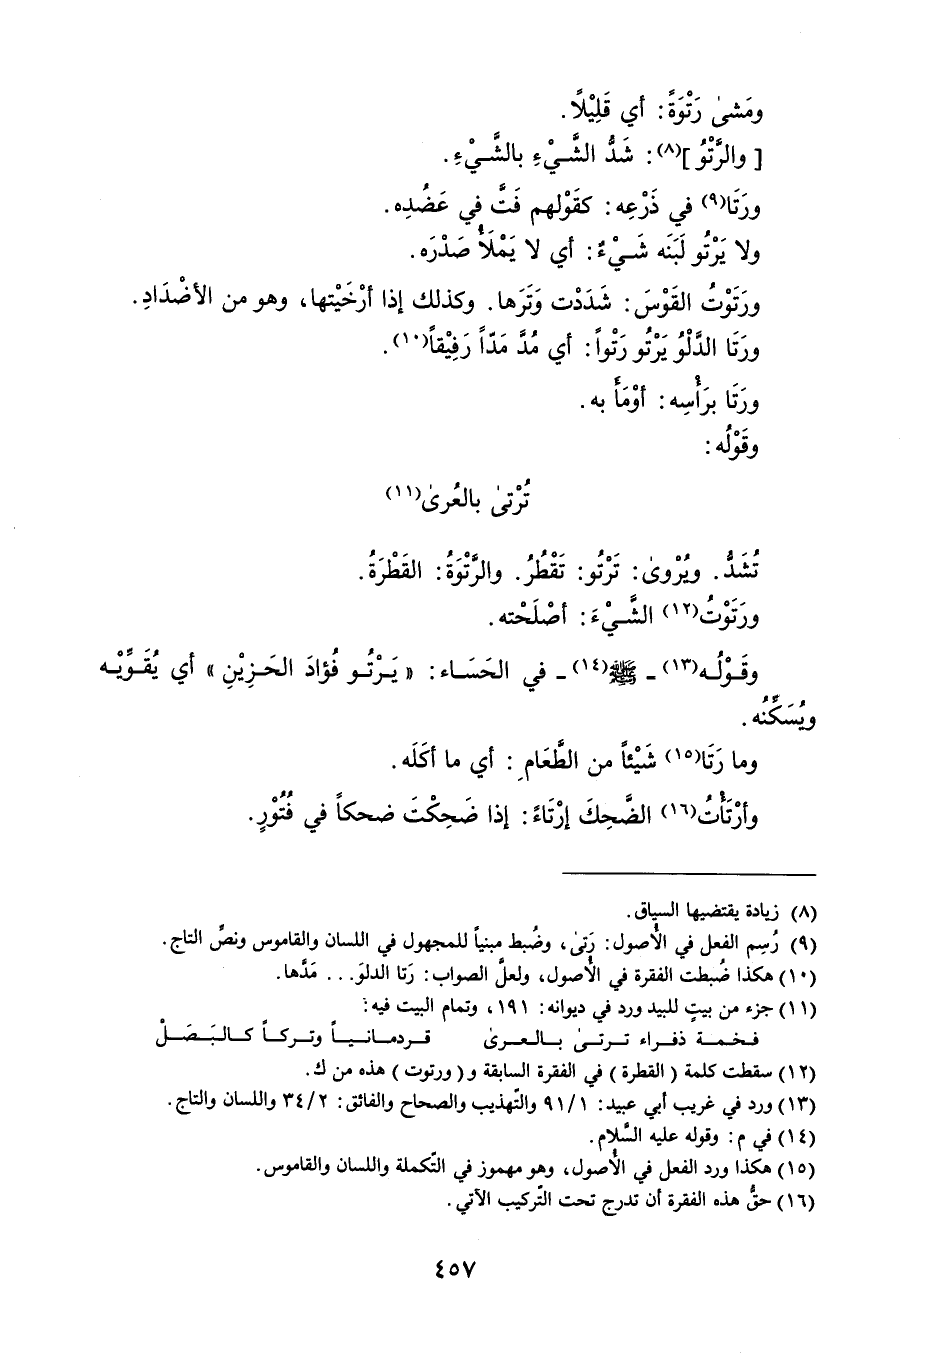 ومَشىٰ رَتْوَةً: أي قَلِيْلًا.
[ والرَّتْوُ ](٨): شَدُّ الشَّيْءِ بالشَّيْءِ.
ورَتَا(٩) في ذَرْعِه: كقَوْلهم فَتَّ في عَضُدِه.
ولا يَرْتُو لَبَنَه شَيْءٌ: أي لا يَمْلَأُ صَدْرَه.
ورَتَوْتُ القَوْسَ: شَدَدْت وَتَرَها. وكذلك إذا أرْخَيْتها، وهو من الأضْدَادِ.
ورَتَا الدَّلْوُ يَرْتُو رَتْواً: أي مُدَّ مَدّاً رَفِيْقاً(١٠).
ورَتَا برَأْسِه: أوْمَأَ به.
وقَوْلُه:
تُرْتىٰ بالعُرىٰ(١١)
تُشَدُّ. ويُرْوىٰ: تَرْتُو: تَقْطُرُ. والرَّتْوَةُ: القَطْرَةُ.
ورَتَوْتُ(١٢) الشَّيْءَ: أصْلَحْته.
وقَوْلُه(١٣) - ﷺ(١٤) - في الحَسَاء: « يَرْتُو فُؤادَ الحَزِيْنِ » أي يُقَوِّيْه
ويُسَكِّنُه.
وما رَتَا(١٥) شَيْئاً من الطَّعَامِ: أي ما أكَلَه.
وأرْتَأْتُ(١٦) الضَّحِكَ إرْتَاءً: إذا ضَحِكْتَ ضحكاً في فُتُوْرٍ.
(٨) زيادة يقتضيها السياق.
(٩) رُسِم الفعل في الأُصول: رَتىٰ، وضُبط مبنياً للمجهول في اللسان والقاموس ونصِّ التاج.
(١٠) هكذا ضُبطت الفقرة في الأُصول، ولعلَّ الصواب: رَتا الدلوَ... مَدَّها.
(١١) جزء من بيتٍ للبيد ورد في ديوانه: ١٩١، وتمام البيت فيه:
فخمة ذفراء ترتىٰ بالعرىٰ قردمانياً وتركاً كالبَصَلْ
(١٢) سقطت كلمة ( القطرة ) في الفقرة السابقة و( ورتوت ) هذه من ك.
(١٣) ورد في غريب أبي عبيد: ٩١/١ والتّهذيب والصحاح والفائق: ٣٤/٢ واللسان والتاج.
(١٤) في م: وقوله عليه السَّلام.
(١٥) هكذا ورد الفعل في الأُصول، وهو مهموز في التّكملة واللسان والقاموس.
(١٦) حقُّ هذه الفقرة أن تدرج تحت التّركيب الآتي.
٤٥٧